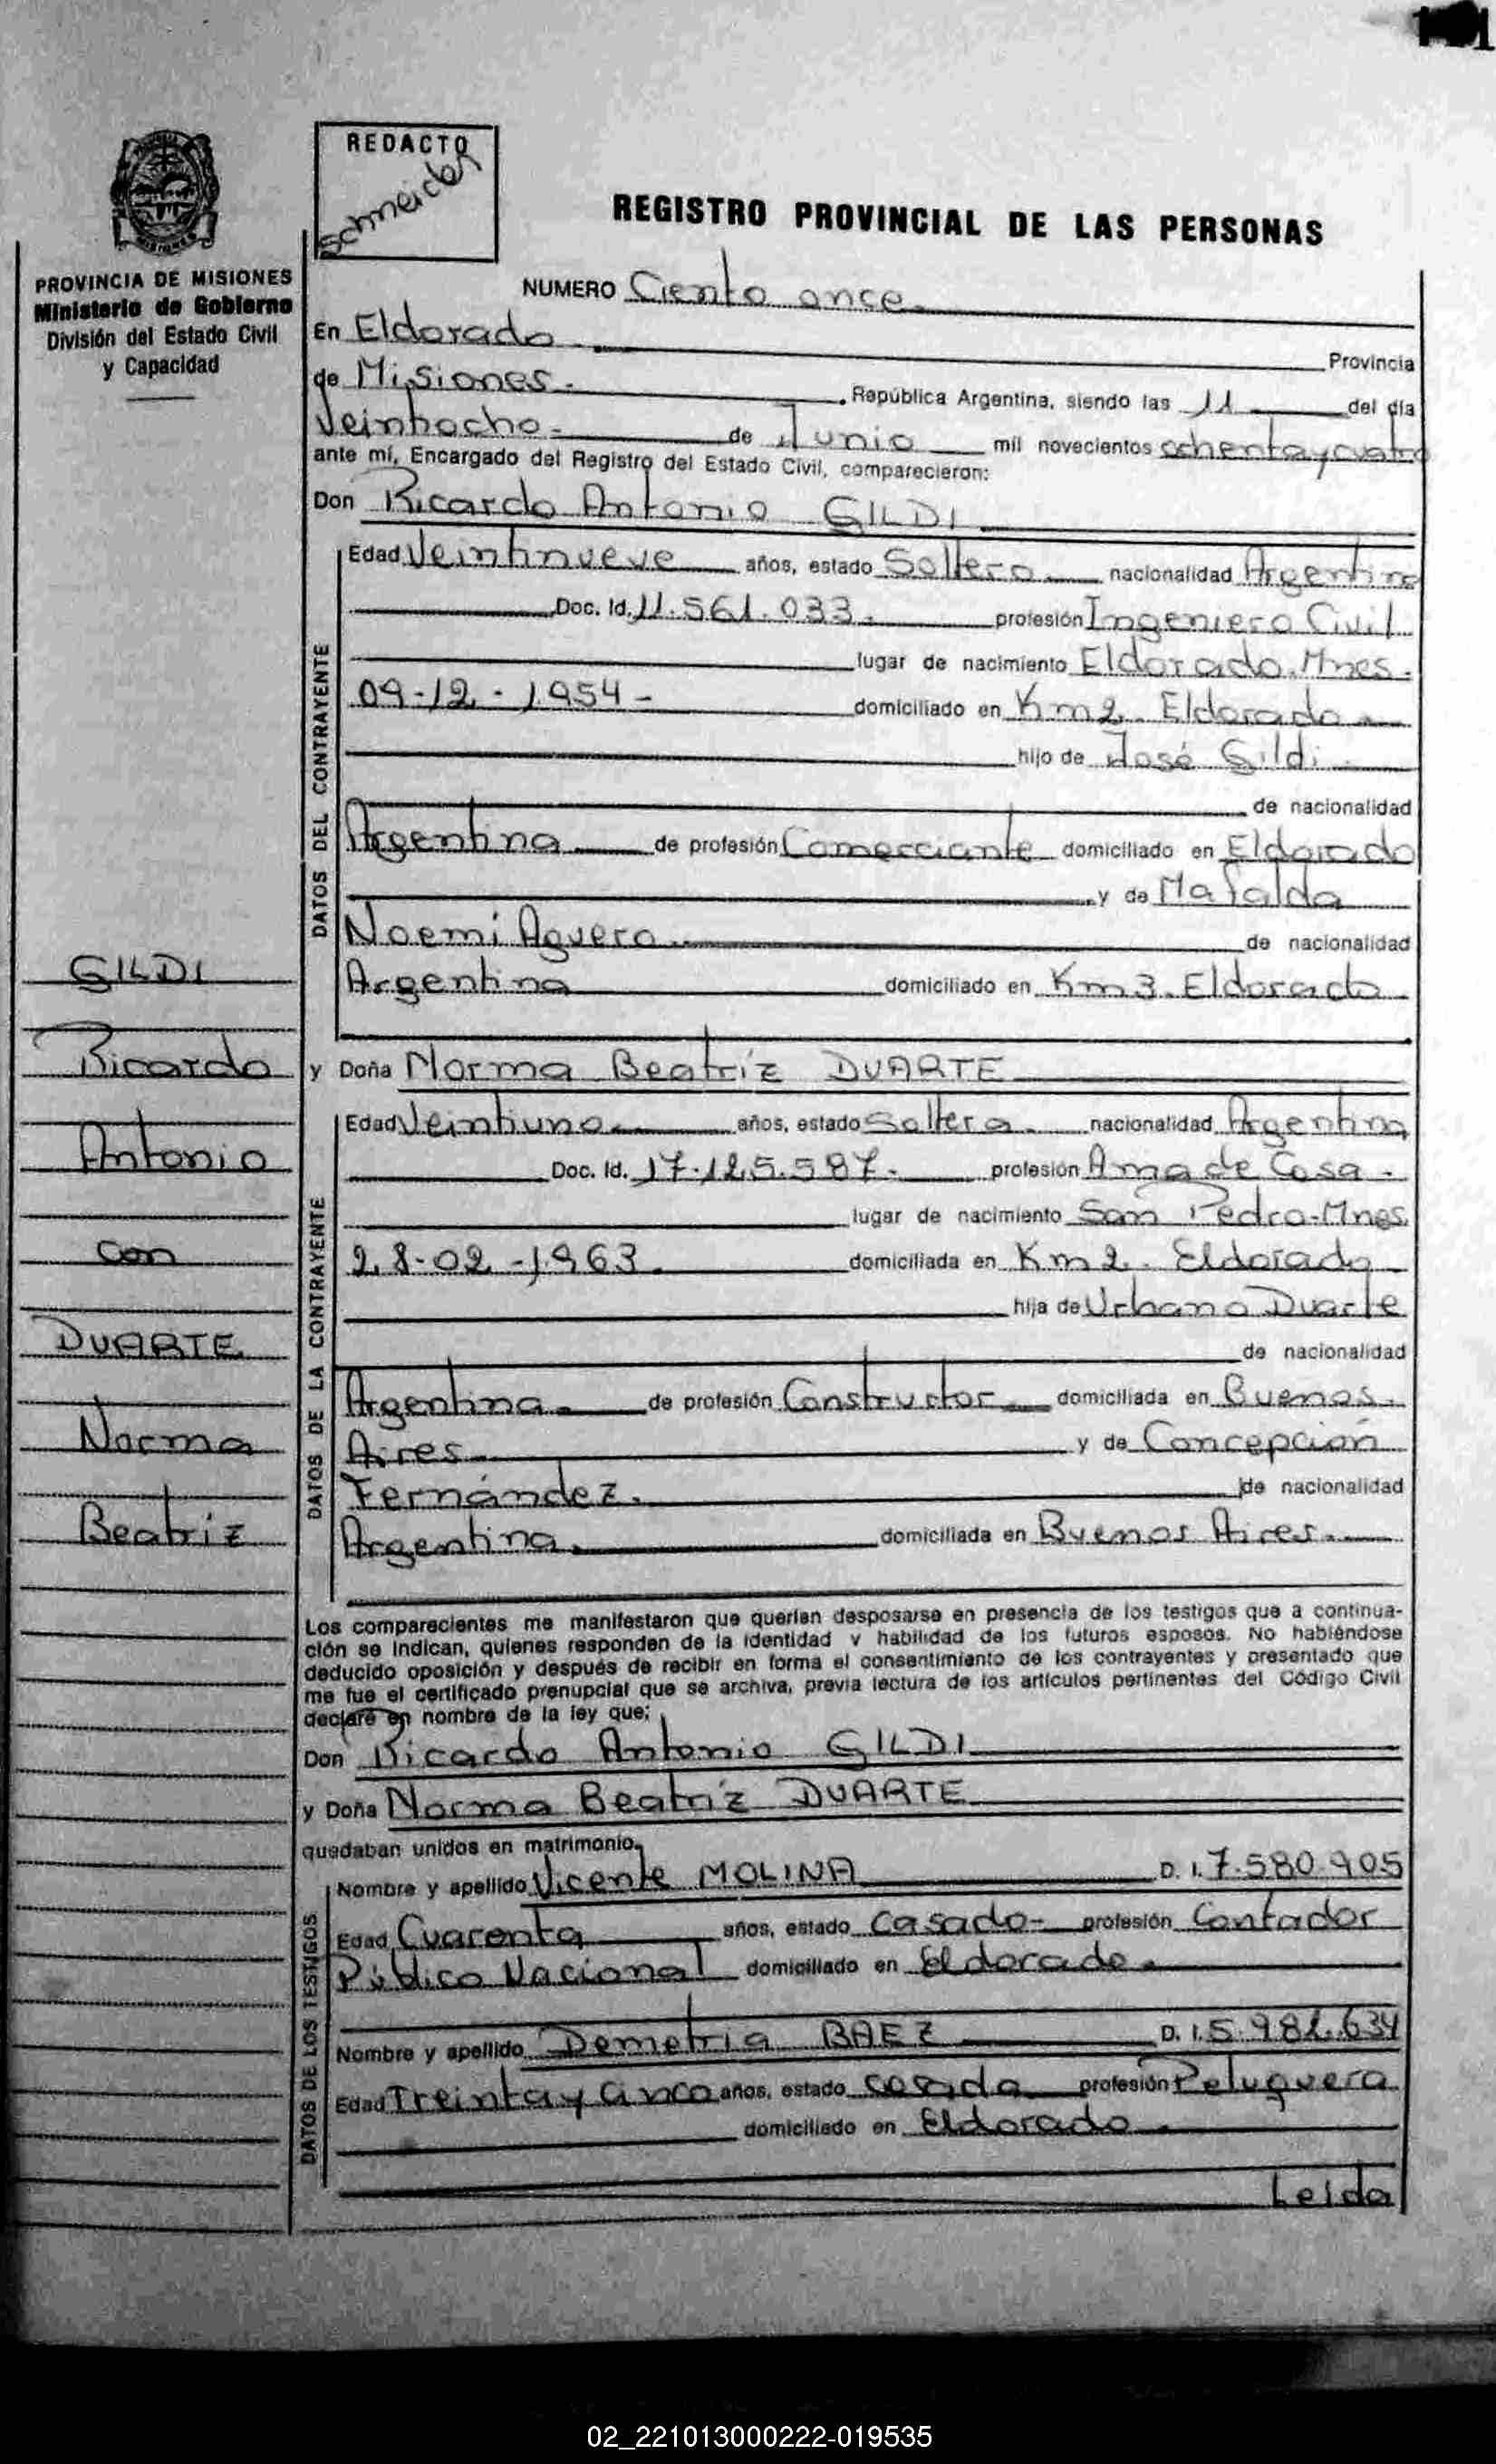 REDACTO
Schneider
REGISTRO PROVINCIAL DE LAS PERSONAS
PROVINCIA DE MISIONES
Ministerio de Gobierno
División del Estado Civil
y Capacidad
NUMERO Ciento once
En Eldorado Provincia
de Misiones. República Argentina, siendo las 11 del día
Veintiocho- de Junio mil novecientos ochenta y cuatro
ante mí, Encargado del Registro del Estado Civil, comparecieron:
Don Ricardo Antonio GILDI
DATOS DEL CONTRAYENTE
Edad Veintinueve años, estado Soltero nacionalidad Argentino
Doc. Id. 11.561.033. profesión Ingeniero Civil
lugar de nacimiento Eldorado. Mnes.
09-12-1954- domiciliado en Km 2. Eldorado
hijo de José Gildi
de nacionalidad
Argentina de profesión Comerciante domiciliado en Eldorado
y de Mafalda
Noemi Aguero de nacionalidad
Argentina domiciliado en Km 3. Eldorado
y Doña Norma Beatriz DUARTE
DATOS DE LA CONTRAYENTE
Edad Veintiuno años, estado Soltera nacionalidad Argentina
Doc. Id. 17.125.587. profesión Ama de Casa.
lugar de nacimiento San Pedro-Mnes.
28-02-1963. domiciliada en Km 2. Eldorado
hija de Urbano Duarte
de nacionalidad
Argentina de profesión Constructor domiciliada en Buenos
Aires y de Concepción
Fernández. de nacionalidad
Argentina. domiciliada en Buenos Aires.
GILDI
Ricardo
Antonio
con
DUARTE
Norma
Beatriz
Los comparecientes me manifestaron que querían desposarse en presencia de los testigos que a continua-
ción se indican, quienes responden de la identidad y habilidad de los futuros esposos. No habiéndose
deducido oposición y después de recibir en forma el consentimiento de los contrayentes y presentado que
me fue el certificado prenupcial que se archiva, previa lectura de los artículos pertinentes del Código Civil
declaré en nombre de la ley que;
Don Ricardo Antonio GILDI
y Doña Norma Beatriz DUARTE
quedaban unidos en matrimonio.
DATOS DE LOS TESTIGOS
Nombre y apellido Vicente MOLINA D. I. 7.580.905
Edad Cuarenta años, estado Casado- profesión Contador
Público Nacional domiciliado en Eldorado.
Nombre y apellido Demetria BAEZ D. I. 5.982.634
Edad Treinta y Cinco años, estado casada profesión Peluquera
domiciliado en Eldorado.
Leida
02_221013000222-019535